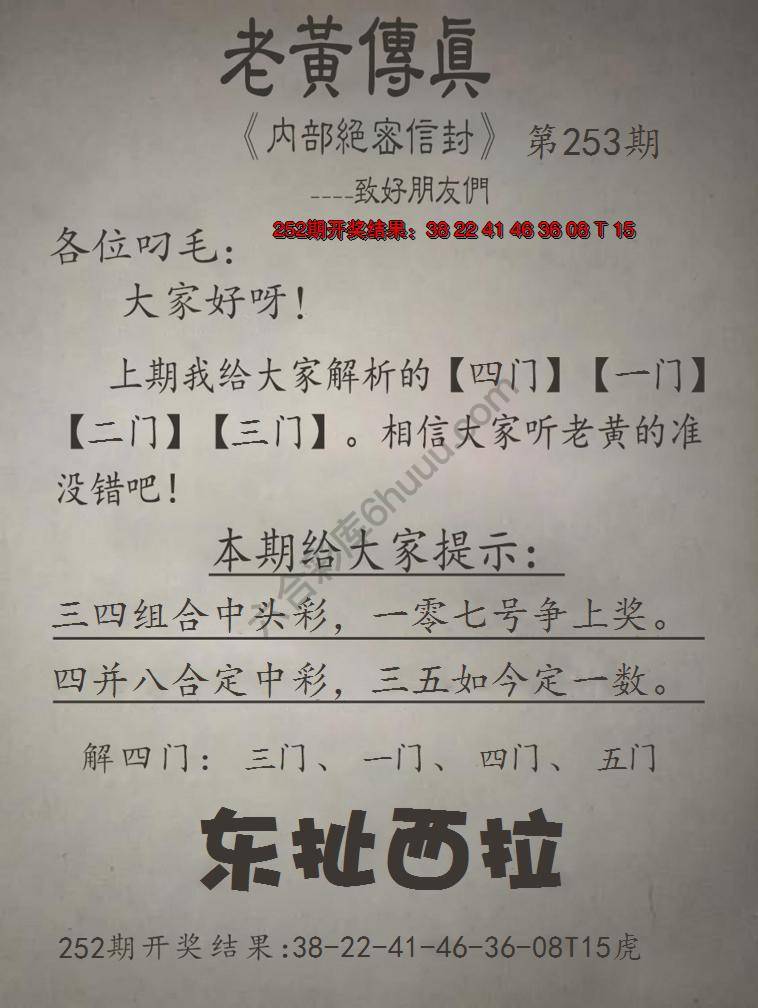 老黃傳真
《内部絕密信封》 第253期
----致好朋友們
252期开奖结果：38 22 41 46 36 08 T 15
各位叼毛：
大家好呀！
上期我给大家解析的【四门】【一门】
【二门】【三门】。相信大家听老黄的准
没错吧！
六合彩库6huuu.com
本期给大家提示：
三四组合中头彩，一零七号争上奖。
四并八合定中彩，三五如今定一数。
解四门：三门、一门、四门、五门
东扯西拉
252期开奖结果:38-22-41-46-36-08T15虎